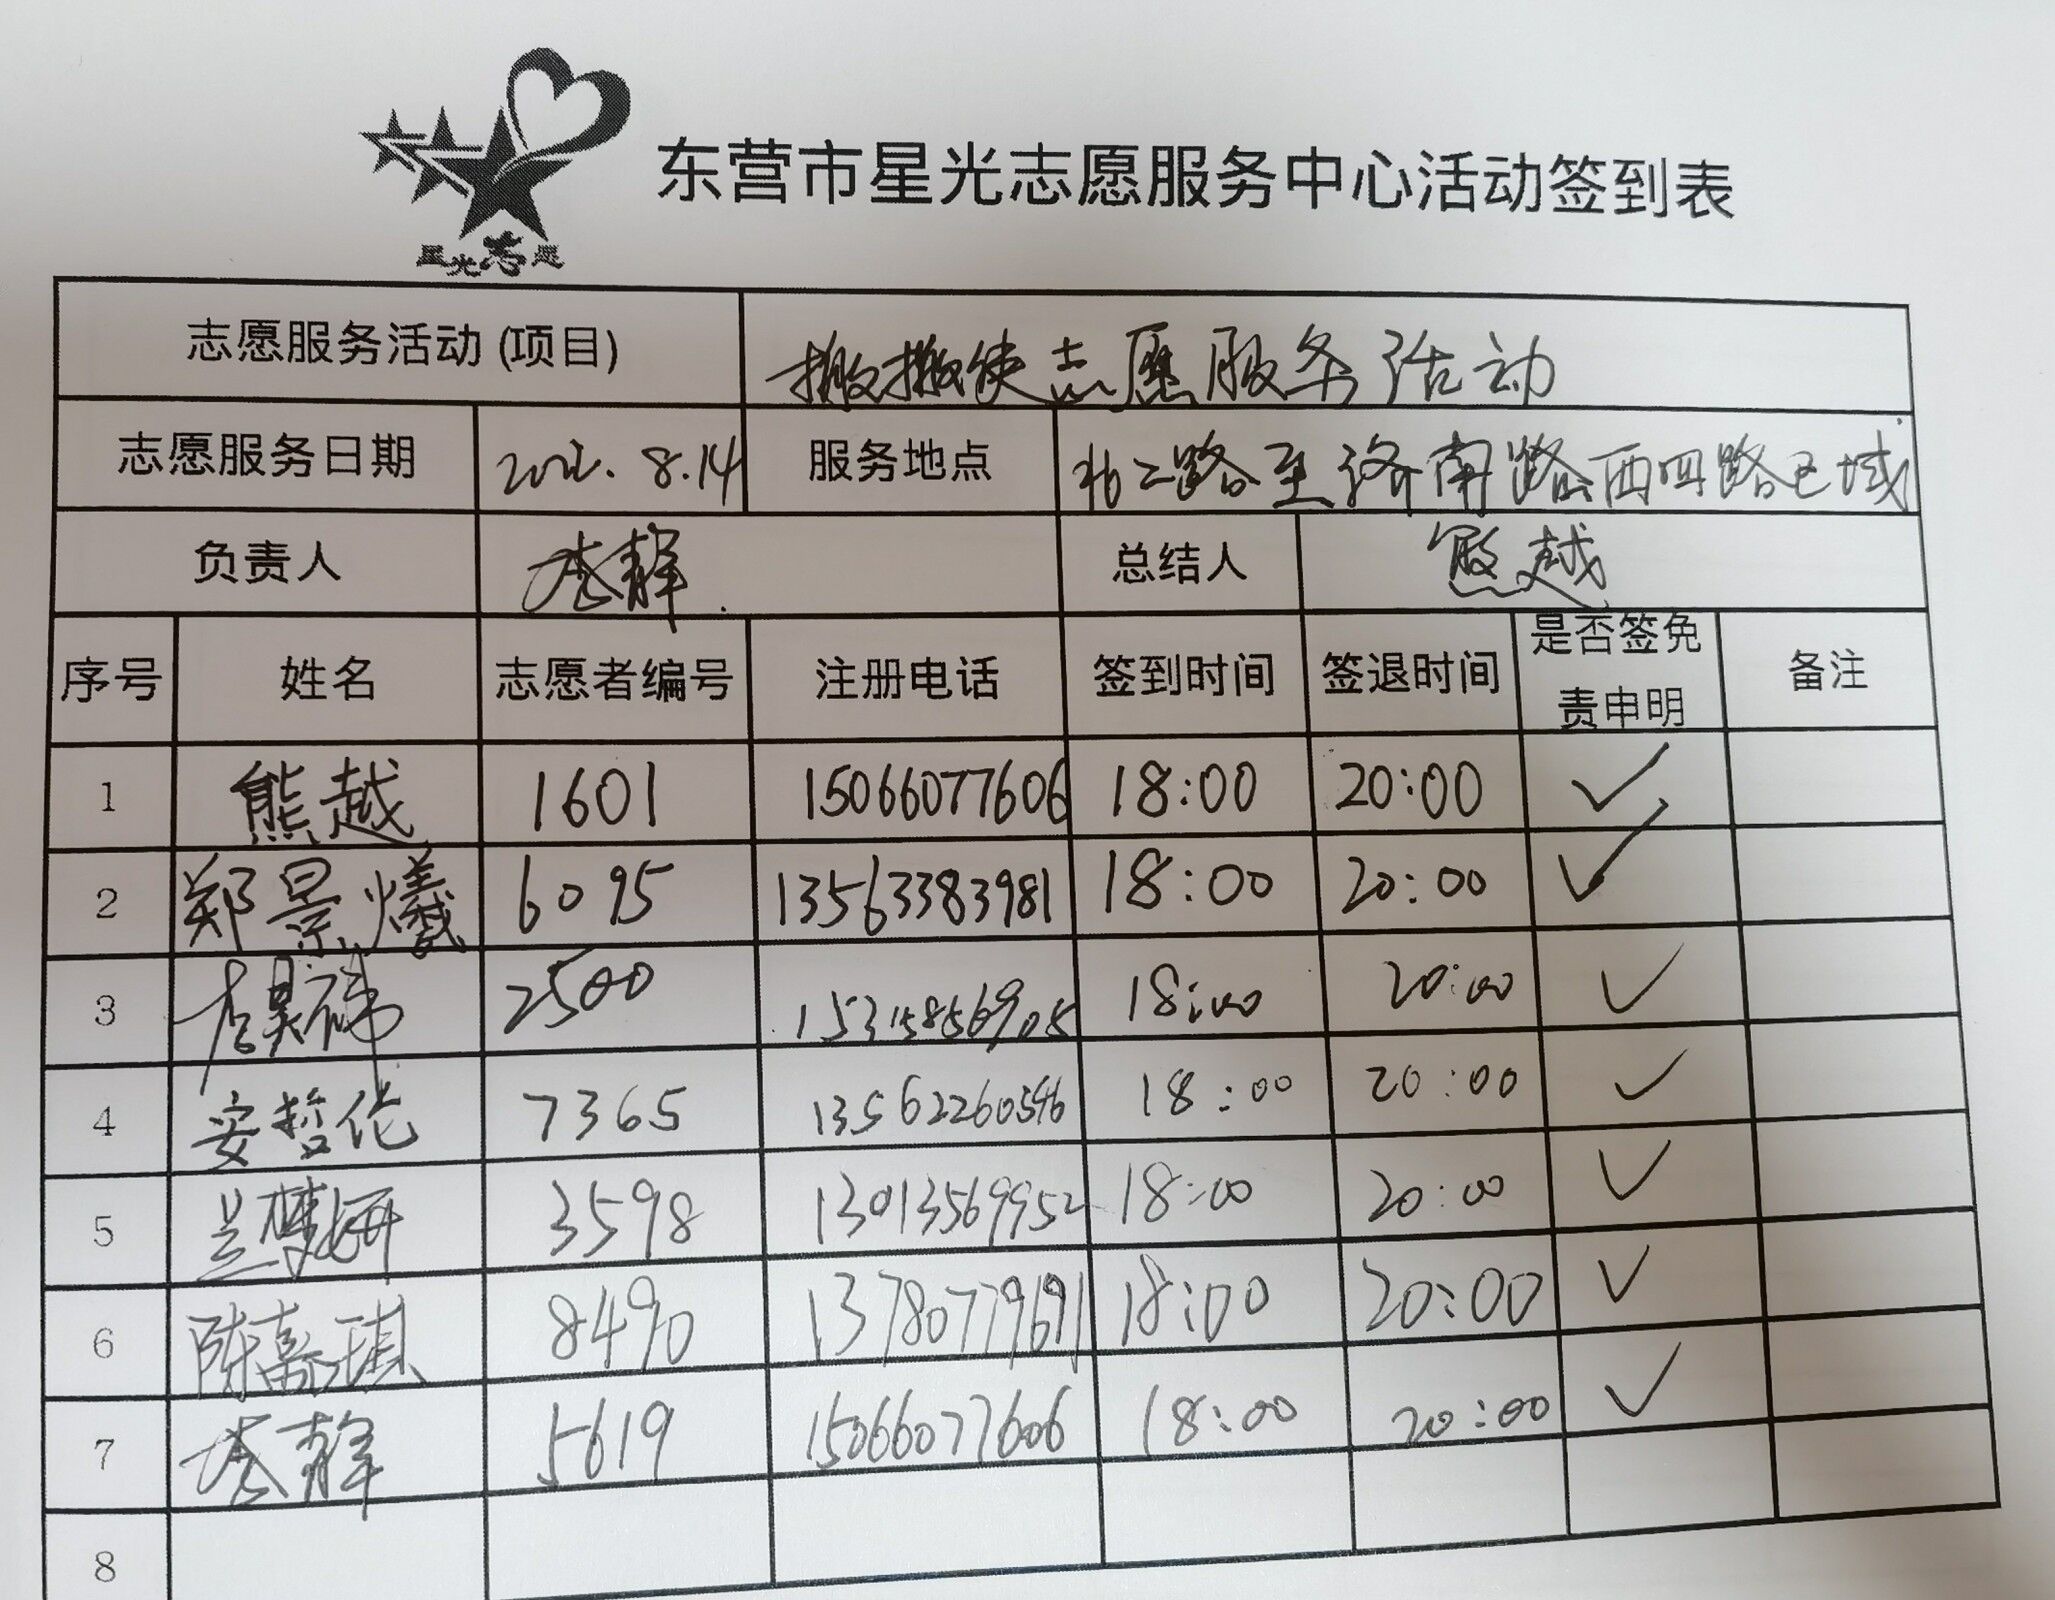 星光志愿
东营市星光志愿服务中心活动签到表
志愿服务活动(项目) 搬搬侠志愿服务活动
志愿服务日期 2022.8.14 服务地点 北二路至济南路西四路区域
负责人 李静 总结人 熊越
序号 姓名 志愿者编号 注册电话 签到时间 签退时间 是否签免责申明 备注
1 熊越 1601 15066077606 18:00 20:00 ✓
2 郑景爔 6095 13563383981 18:00 20:00 ✓
3 李昊祎 2500 15315856905 18:00 20:00 ✓
4 安哲伦 7365 13562260546 18:00 20:00 ✓
5 兰梦妍 3598 13013569952 18:00 20:00 ✓
6 陈嘉琪 8490 13780779691 18:00 20:00 ✓
7 李静 5619 15066077606 18:00 20:00 ✓
8